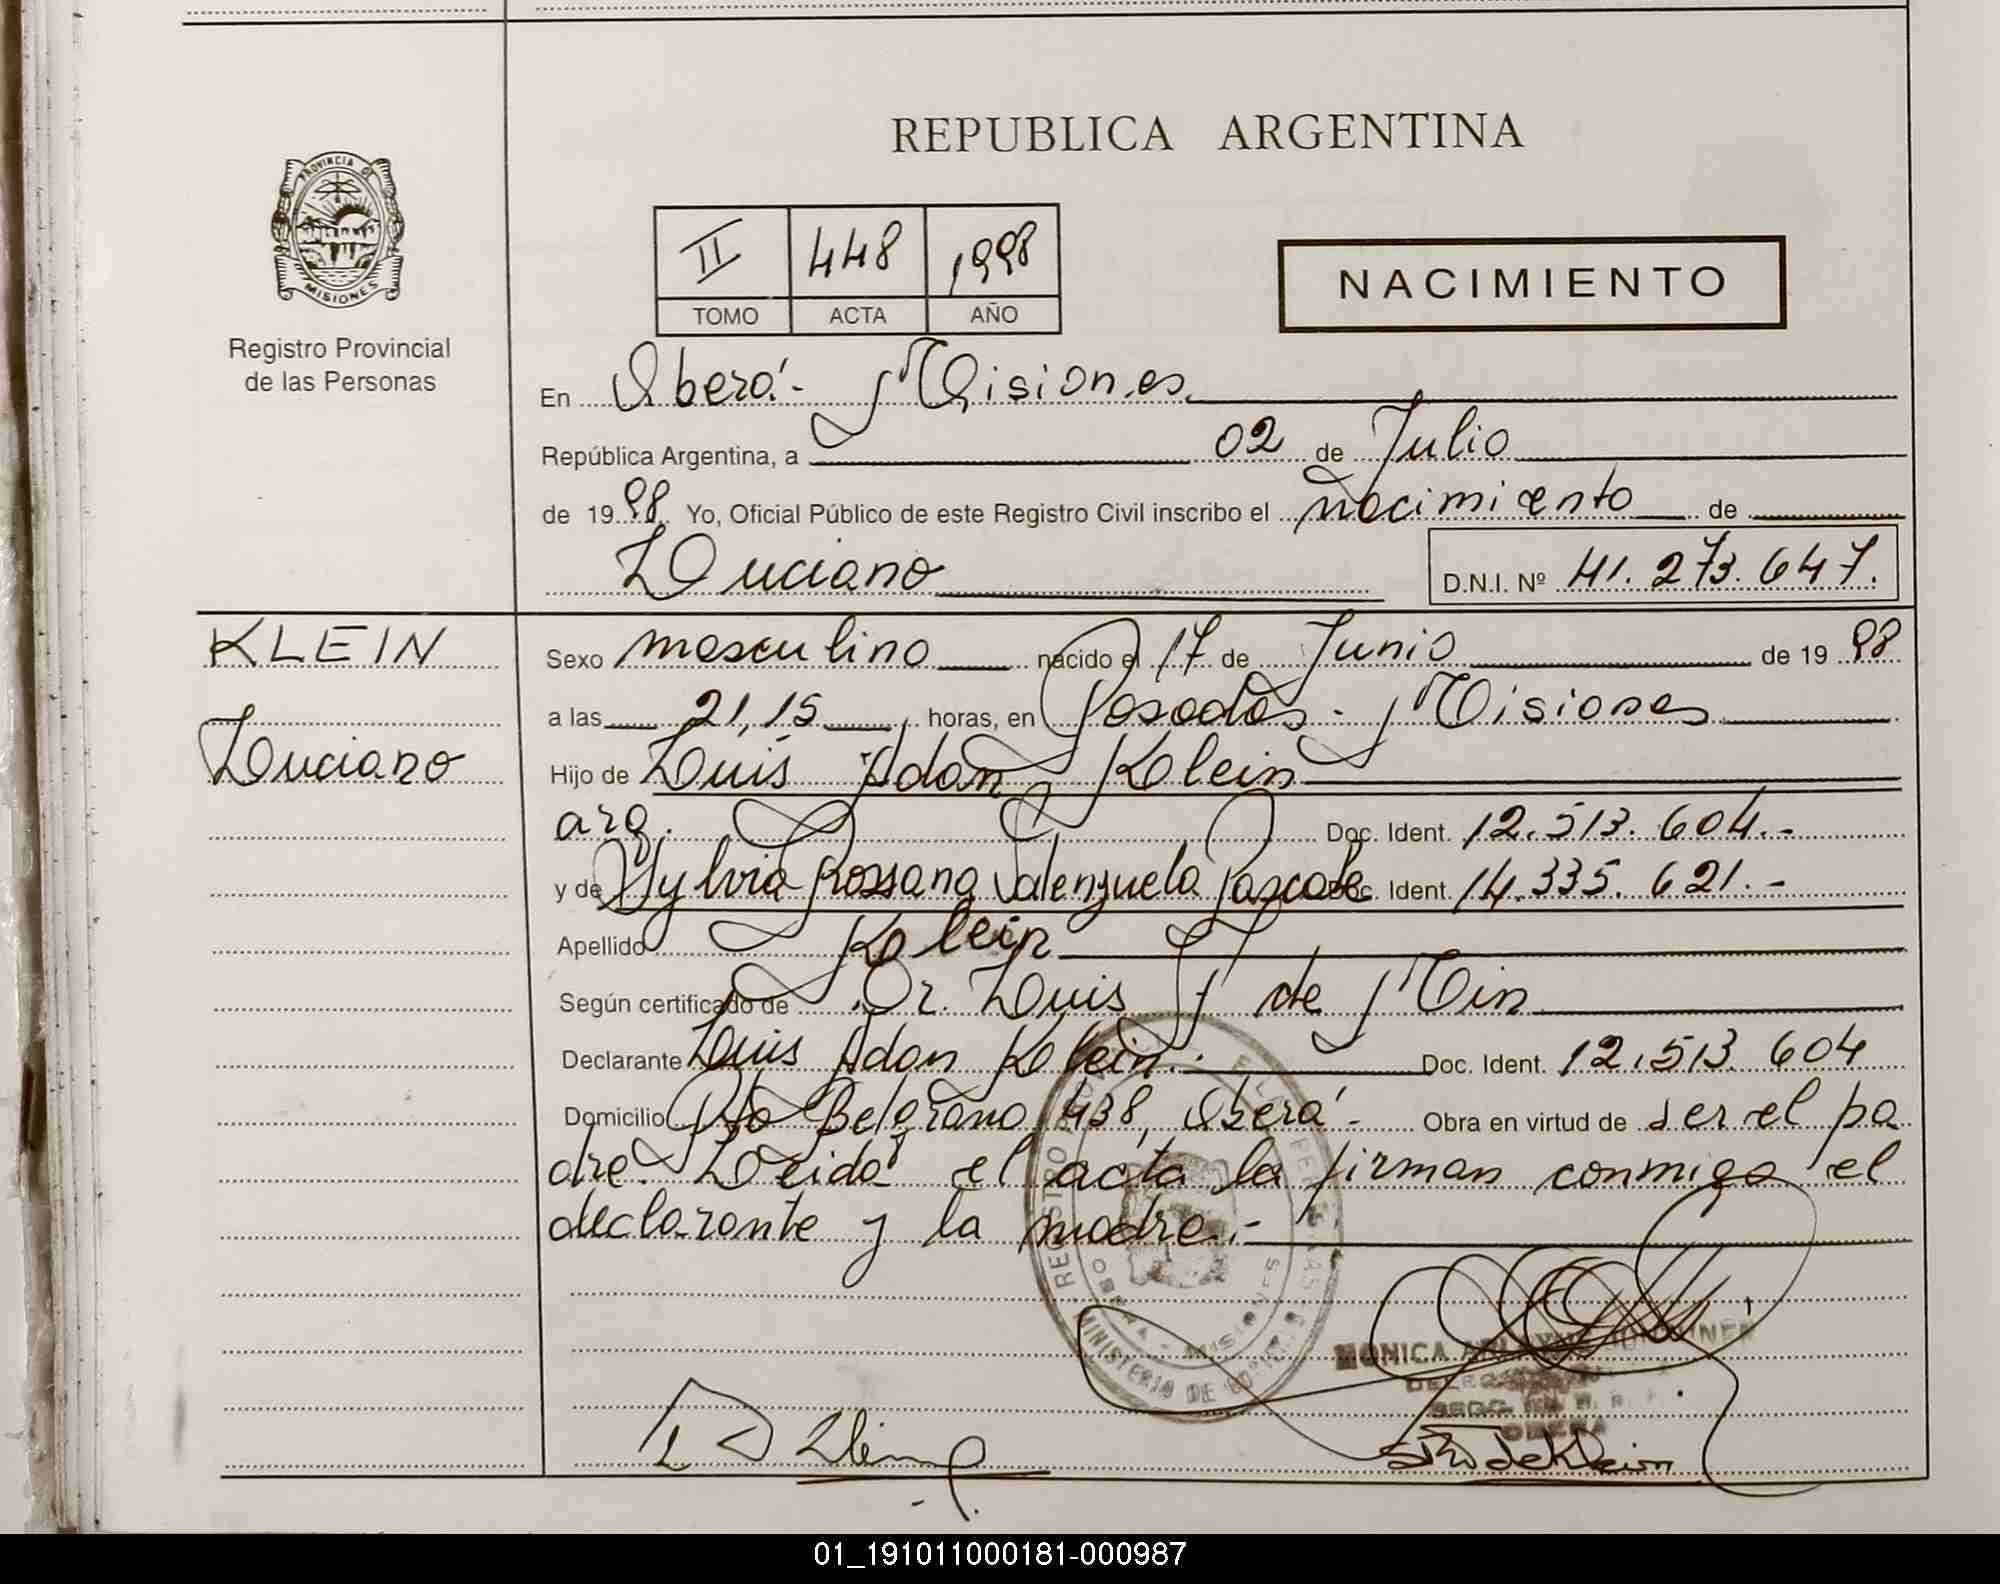 REPUBLICA ARGENTINA
PROVINCIA DE
MISIONES
Registro Provincial
de las Personas
II 448 1998
TOMO ACTA AÑO
NACIMIENTO
En Oberá - Misiones
República Argentina, a 02 de Julio
de 1998 Yo, Oficial Público de este Registro Civil inscribo el nacimiento de
Luciano D.N.I. Nº 41.273.647.
KLEIN
Luciano
Sexo masculino nacido el 17 de Junio de 1998
a las 21,15 horas, en Posadas - Misiones
Hijo de Luis Adan Klein
arg. Doc. Ident. 12.513.604.-
y de Sylvia Rossana Valenzuela Pascale Doc. Ident. 14.335.621.-
Apellido Klein
Según certificado de Dr. Luis F de Min
Declarante Luis Adan Klein. Doc. Ident. 12.513.604
Domicilio Pto Belgrano 438, Oberá - Obra en virtud de ser el pa
dre. Leida el acta la firman conmigo el
declarante y la madre.-
REGISTRO
MINISTERIO DE
MONICA
OBERA
de Klein
01_191011000181-000987